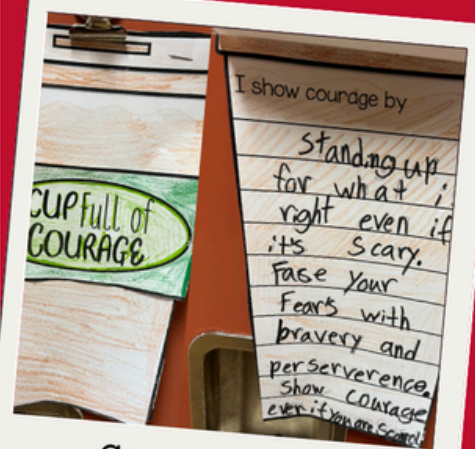 CUP Full of
COURAGE
I show courage by
Standing up
for what i
right even if
it's scary.
Fase your
Fears with
bravery and
perserverence.
Show courage
even if you are scared.